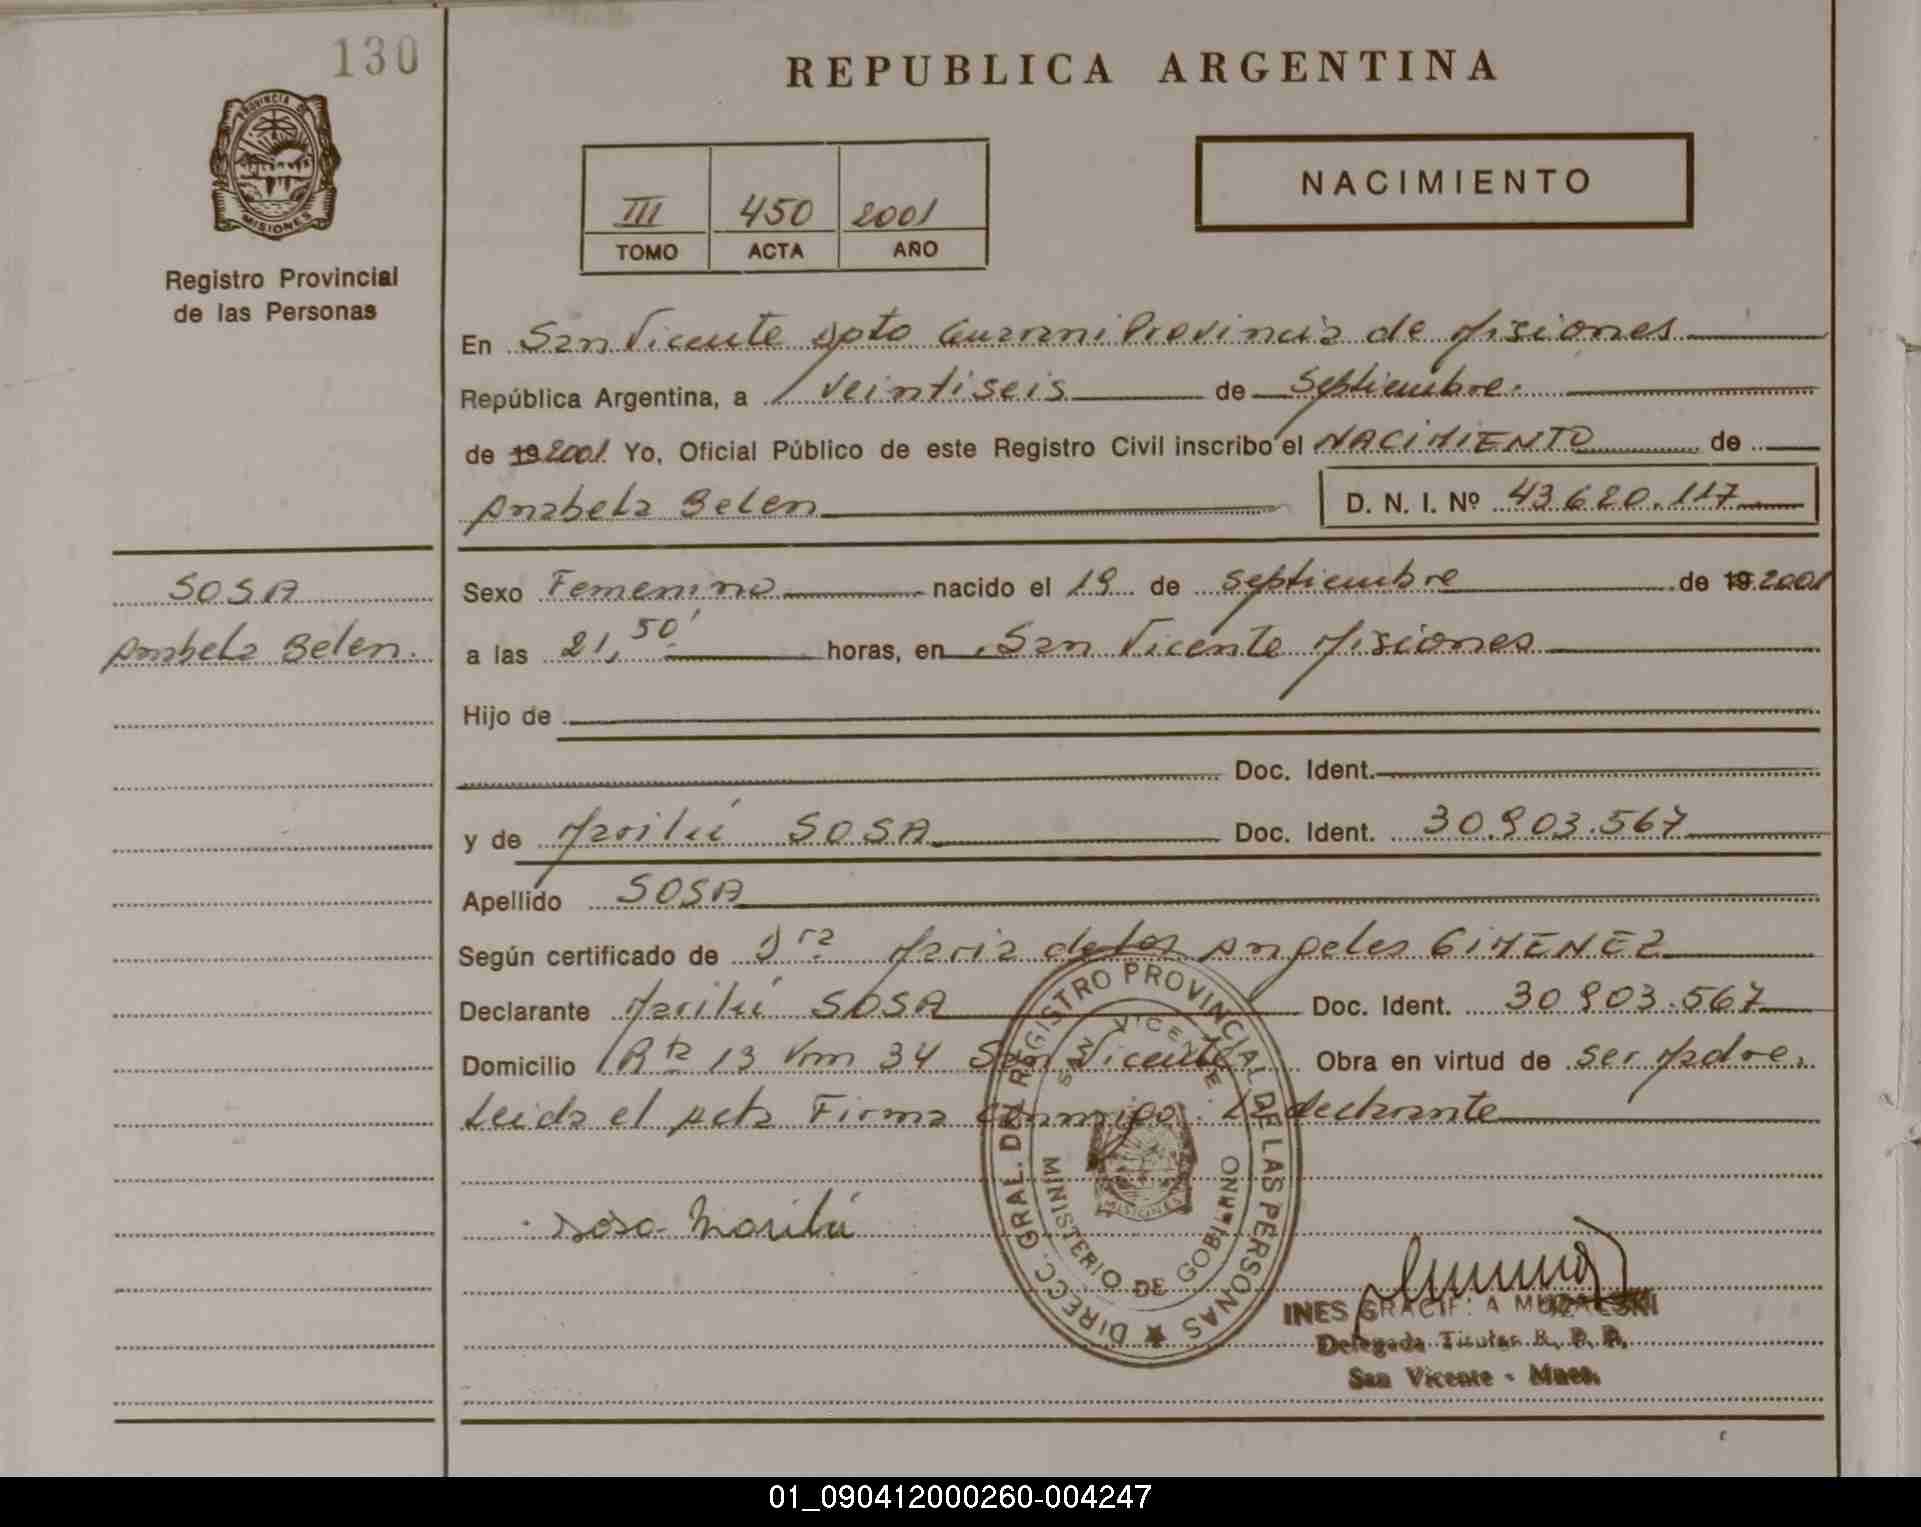 130
REPUBLICA ARGENTINA
PROVINCIA DE
MISIONES
Registro Provincial
de las Personas
III 450 2001
TOMO ACTA AÑO
NACIMIENTO
En San Vicente Dpto Guarani Provincia de Misiones
República Argentina, a veintiseis de Septiembre.
de 19 2001 Yo, Oficial Público de este Registro Civil inscribo el NACIMIENTO de
Anabela Belen D. N. I. Nº 43.620.117
SOSA
Anabela Belen.
Sexo Femenino nacido el 19 de Septiembre de 19 2001
a las 21,50' horas, en San Vicente Misiones
Hijo de
Doc. Ident.
y de Marilú SOSA Doc. Ident. 30.903.567
Apellido SOSA
Según certificado de Dra Maria de los Angeles GIMENEZ
Declarante Marilú SOSA Doc. Ident. 30903.567
Domicilio Rta 13 Km 34 San Vicente Obra en virtud de ser Madre.
Leida el Acta Firma conmigo: La declarante
Sosa Marilú
DIRECC. GRAL. DEL REGISTRO PROVINCIAL DE LAS PERSONAS
SAN VICENTE
MINISTERIO DE GOBIERNO
MISIONES
INES
Delegada Titular R. P. P.
San Vicente - Mnes.
01_090412000260-004247